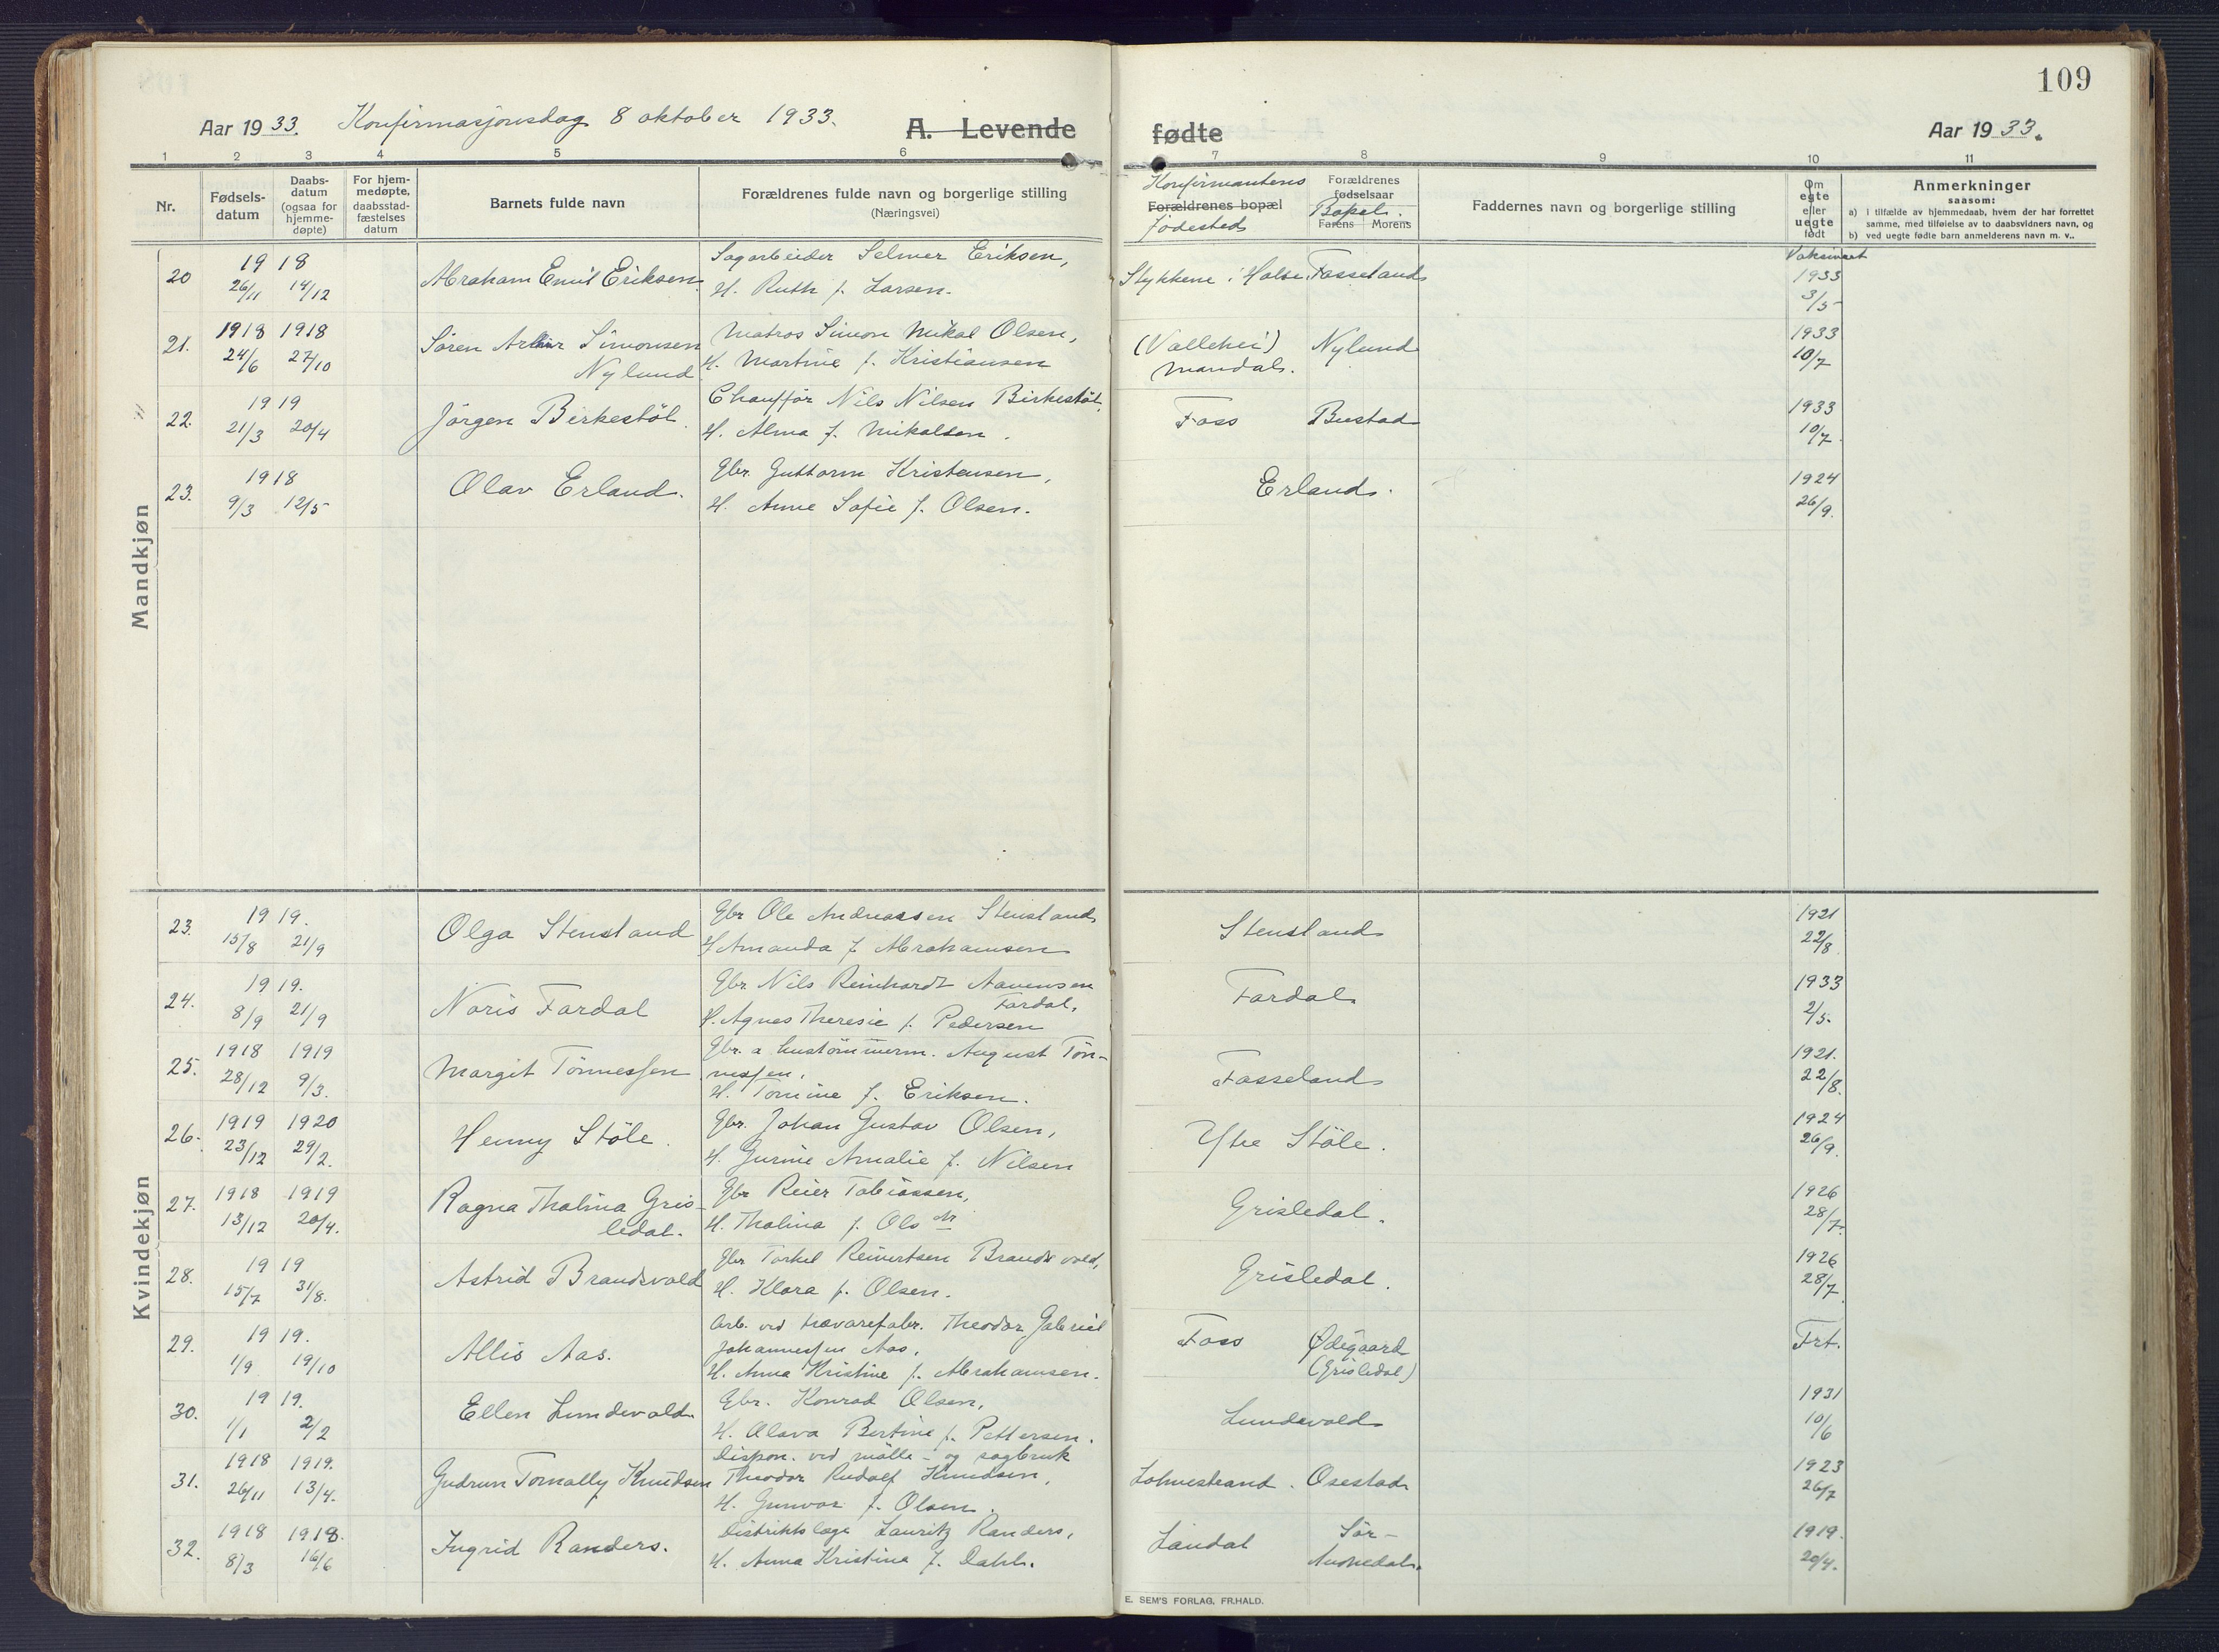 109
Aar 19 33. Konfirmasjonsdag 8 oktober 1933. A. Levende fødte Aar 19 33.
1 2 3 4 5 6 7 8 9 10 11
Nr.
Fødsels-
datum
Daabs-
datum
(ogsaa for
hjemme-
døpte)
For hjem-
medøpte,
daabsstad-
fæstelses
datum
Barnets fulde navn
Forældrenes fulde navn og borgerlige stilling
(Næringsvei)
Konfirmantens
Forældrenes bopæl
fødested
Forældrenes
fødselsaar
Bopel.
Farens Morens
Faddernes navn og borgerlige stilling
Om
egte
eller
uegte
født
Anmerkninger
saasom:
a) i tilfælde av hjemmedaab, hvem der har forrettet
samme, med tilføielse av to daabsvidners navn, og
b) ved uegte fødte barn anmelderens navn m. v..
Vaksinert
Mandkjøn
20 1918 26/11 14/12 Abraham Emil Eriksen. Sagarbeider Selmer Eriksen, Stykkene i Halse. Fasseland 1933
H. Ruth f. Larsen. 3/5
21. 1918 1918 Sören Artur Simonsen Matros Simon Mikal Olsen, (Vallehei) Nylund 1933
24/6 27/10 Nylund H. Martine f. Kristiansen Mandal. 10/7
22. 1919 Jörgen Birkestöl. Chaufför Nils Nilsen Birkestöl, Foss Bustad 1933
21/3 20/4 H. Alma f. Mikalsen. 10/7
23. 1918 Olav Erland. Gbr. Guttorm Kristensen, Erland. 1924
9/3 12/5 H. Anne Sofie f. Olsen. 26/9.
Kvindekjøn
23. 1919. Olga Stensland Gbr Ole Andreassen Stensland Stensland 1921
15/8 21/9 H Amanda f. Abrahamsen 22/8
24. 1919. Noris Fardal Gbr Nils Reinhardt Aavensen Fardal 1933
8/9 21/9 Fardal,
H. Agnes Theresie f. Pedersen 2/5.
25. 1918 1919 Margit Tönnessen Gbr. a hustömmerm. August Tön- Fasseland 1921.
28/12 9/3. nessen,
H. Tomine f. Eriksen. 22/8.
26. 1919 1920 Henny Stöle. Gbr. Johan Gustav Olsen, Ytre Stöle. 1924
23/12 29/2. H. Gurine Amalie f. Nilsen 26/9.
27. 1918 1919 Ragna Thalina Gris- Gbr Reier Tobiassen, Grisledal. 1926
13/12 20/4. ledal. H. Thalina f. Olsdtr 28/7.
28. 1919 Astrid Brandsvold Gbr Torkel Reinertsen Brandsvold, Grisledal. 1926
15/7 31/8. H. Klara f. Olsen. 28/7.
29. 1919. Allis Aas. Arb. ved trævarefabr. Theodor Gabriel Foss Ødegaard Frt.
1/9 19/10 Johannessen Aas, (Grisledal)
H. Anna Kristine f. Abrahamsen.
30. 1919. Ellen Lundevold. Gbr. Konrad Olsen, Lundevold 1931
1/1 2/2 H. Olava Bertine f. Pettersen. 10/6
31. 1918 1919. Gudrun Tomally Knudsen Dispon. ved mölle- og sagbruk Holmestrand. Osestad 1923
26/11 13/4. Theodor Rudolf Knudsen, 26/7
H. Gunvor f. Olsen.
32. 1918 1918. Ingrid Randers. Distriktslæge Lauritz Randers, Laudal Sör- 1919.
8/3 16/6 H. Anna Kristina f. Dahl. Audnedal. 20/4.
E. SEM'S FORLAG, FR.HALD.